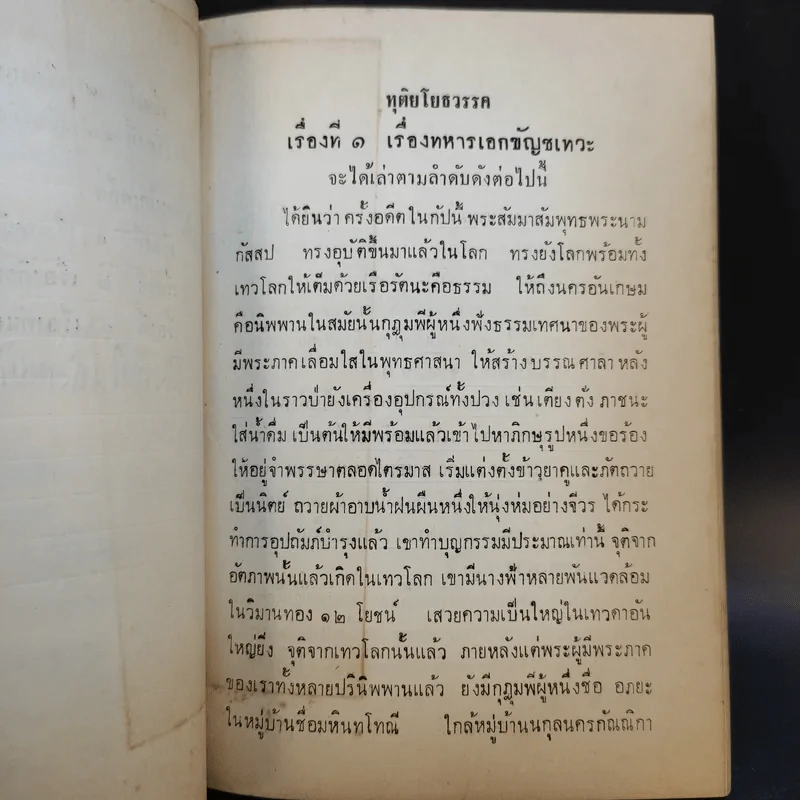 ทุติยโยธวรรค
เรื่องที่ ๑ เรื่องทหารเอกขัญชเทวะ
จะได้เล่าตามลำดับดังต่อไปนี้
ได้ยินว่า ครั้งอดีตในกัปนี้ พระสัมมาสัมพุทธพระนาม
กัสสป ทรงอุบัติขึ้นมาแล้วในโลก ทรงยังโลกพร้อมทั้ง
เทวโลกให้เต็มด้วยเรือรัตนะคือธรรม ให้ถึงนครอันเกษม
คือนิพพานในสมัยนั้นกุฎุมพีผู้หนึ่งฟังธรรมเทศนาของพระผู้
มีพระภาค เลื่อมใสในพุทธศาสนา ให้สร้าง บรรณ ศาลา หลัง
หนึ่งในราวป่ายังเครื่องอุปกรณ์ทั้งปวง เช่น เตียง ตั่ง ภาชนะ
ใส่น้ำดื่ม เป็นต้นให้มีพร้อมแล้วเข้าไปหาภิกษุรูปหนึ่งขอร้อง
ให้อยู่จำพรรษาตลอดไตรมาส เริ่มแต่งตั้งข้าวยาคูและภัตถวาย
เป็นนิตย์ ถวายผ้าอาบน้ำฝนผืนหนึ่งให้นุ่งห่มอย่างจีวร ได้กระ
ทำการอุปถัมภ์บำรุงแล้ว เขาทำบุญกรรมมีประมาณเท่านี้ จุติจาก
อัตภาพนั้นแล้วเกิดในเทวโลก เขามีนางฟ้าหลายพันแวดล้อม
ในวิมานทอง ๑๒ โยชน์ เสวยความเป็นใหญ่ในเทวดาอัน
ใหญ่ยิ่ง จุติจากเทวโลกนั้นแล้ว ภายหลังแต่พระผู้มีพระภาค
ของเราทั้งหลายปรินิพพานแล้ว ยังมีกุฎุมพีผู้หนึ่งชื่อ อภยะ
ในหมู่บ้านชื่อมหินทโทณี ใกล้หมู่บ้านนกุลนครกัณณิกา